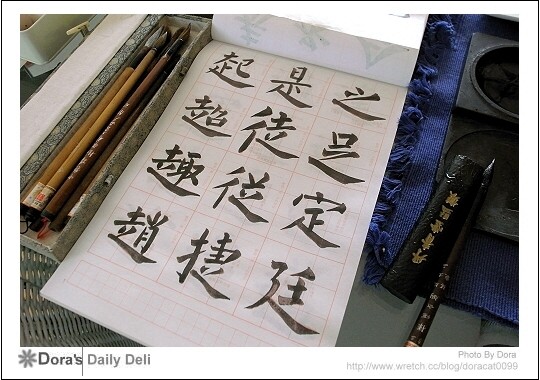 之足定廷
是徒従捷
起超趣趙
Dora's Daily Deli
Photo By Dora
http://www.wretch.cc/blog/doracat0099